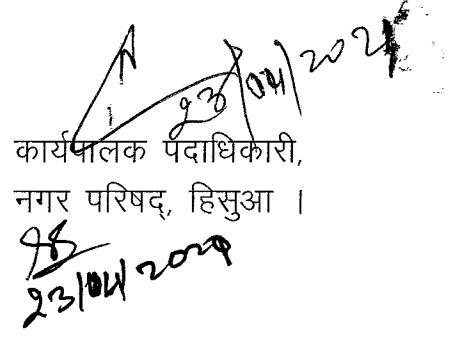 23/04/2021
कार्यपालक पदाधिकारी,
नगर परिषद्, हिसुआ ।
23/04/2021